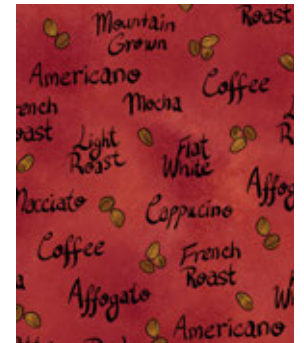 Mountain
Grown
Roast
Americano
Coffee
rench
oast
Mocha
Light
Roast
Flat
White
Affog
Macciato
Cappucino
Coffee
French
Roast
Affogato
Wh
Americano